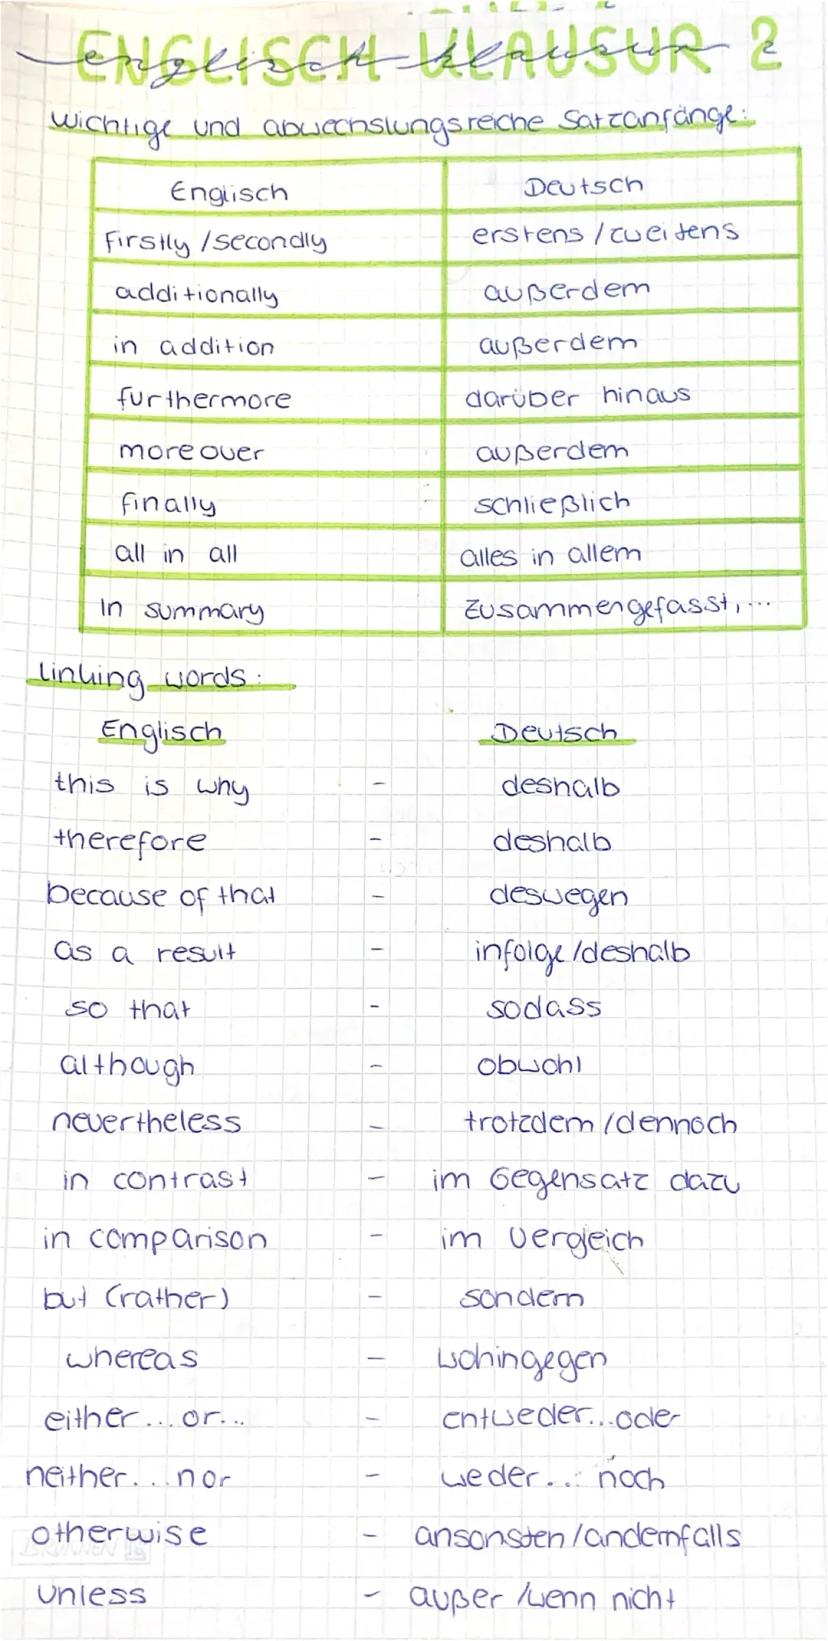 ENGLISCH KLAUSUR 2
englisch klausur
wichtige und abwechslungsreiche Satzanfänge:
Englisch Deutsch
firstly/secondly erstens/zweitens
additionally außerdem
in addition außerdem
furthermore darüber hinaus
moreover außerdem
finally schließlich
all in all alles in allem
In summary Zusammengefasst,...
linking words:
Englisch Deutsch
this is why - deshalb
therefore - deshalb
because of that - deswegen
as a result - infolge/deshalb
so that - sodass
although - obwohl
nevertheless - trotzdem/dennoch
in contrast - im Gegensatz dazu
in comparison - im Vergleich
but (rather) - sondern
whereas - wohingegen
either...or... - entweder...oder
neither...nor - weder... noch
otherwise - ansonsten/andernfalls
unless - außer/wenn nicht